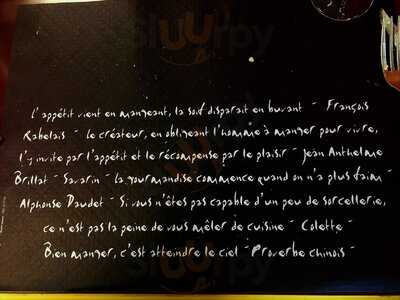 Sluurpy
L'appétit vient en mangeant, la soif disparait en buvant - François
Rabelais - Le créateur, en obligeant l'homme à manger pour vivre,
l'y invite par l'appétit et le récompense par le plaisir - Jean Anthelme
Brillat - Savarin - La gourmandise commence quand on n'a plus faim -
Alphonse Daudet - Si vous n'êtes pas capable d'un peu de sorcellerie,
ce n'est pas la peine de vous mêler de cuisine - Colette -
Bien manger, c'est atteindre le ciel - Proverbe chinois -